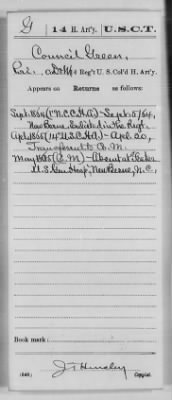 G 14 H. Art'y. U.S.C.T.
Council Green
Pvt., Co. , 14 Reg't U. S. Col'd H. Art'y.
Appears on Returns as follows:
Sept. 1864 (1" N.C.C.H.A.) - Sept. 5/64,
New Berne, Enlisted in the Regt.
Apl. 1865 (14" U.S.C.H.A.) - Apl. 20,
Transferred to C. M.
May 1865 (C. M.) - Absent at Foster
U.S. Gen. Hosp., New Berne, N.C.
Book mark:
J. T. Hinckey
(546) Copyist.